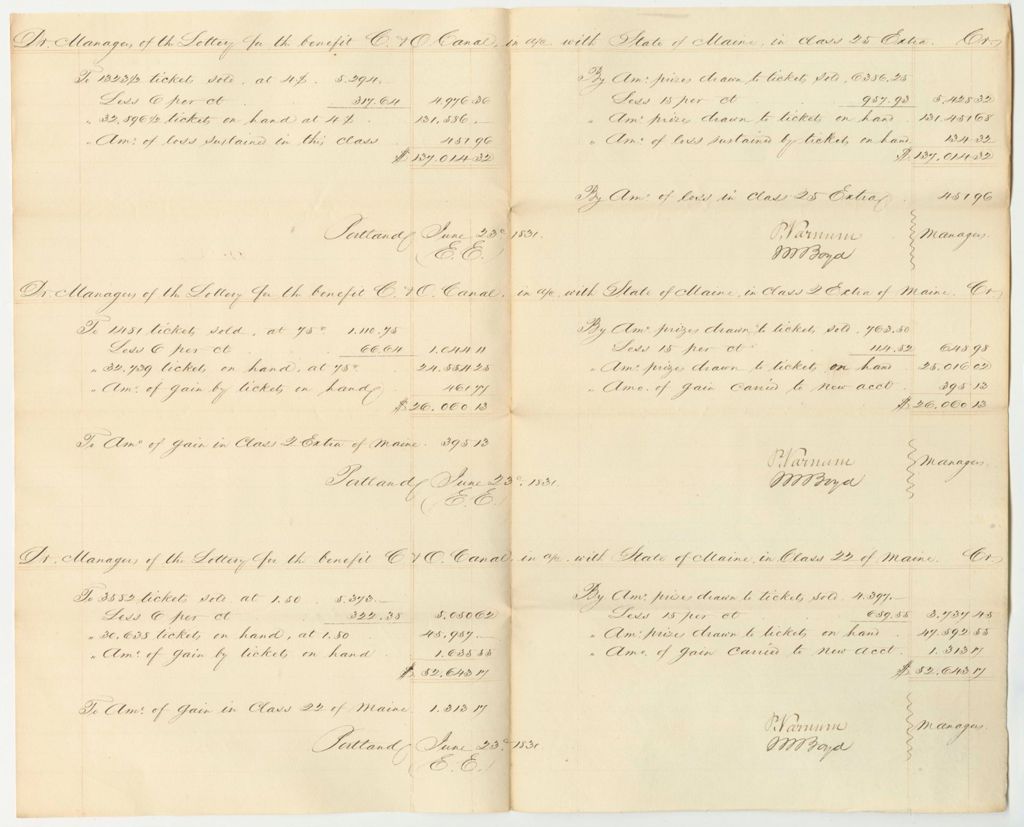 Dr. Managers of the Lottery for the benefit C. & O. Canal, in a/c. with State of Maine, in class 25 Extra. Cr.
To 1323½ tickets sold, at 4$. 5.294.
Less 6 per ct 317.64 4.976 36
" 32.896½ tickets on hand at 4$ 131.586.
" Amt. of loss sustained in this class 451 96
$ 137.014 32
By Amt. prizes drawn to tickets sold, 6386.25
Less 15 per ct 957.93 5.428 32
" Amt. prizes drawn to tickets on hand 131.451 68
" Amt. of loss sustained by tickets on hand 134 32
$ 137.014 32
By Amt. of loss in class 25 Extra 451 96
Portland June 23d. 1831.
(E.E.)
P. Varnum
M Boyd
Managers.
Dr. Managers of the Lottery for the benefit C. & O. Canal, in a/c. with State of Maine, in class 2 Extra of Maine. Cr.
To 1481 tickets sold, at 75c. 1.110.75
Less 6 per ct 66.64 1.044 11
" 32.739 tickets on hand, at 75c. 24.554 25
" Amt. of gain by tickets on hand 461 77
$ 26.060 13
To Amt. of gain in Class 2 Extra of Maine. 395 13
By Amt. prizes drawn to tickets sold. 763.50
Less 15 per ct 114.52 648 98
" Amt. prizes drawn to tickets on hand 25.016 02
" Amt. of gain carried to new acct. 395 13
$ 26.060 13
Portland June 23d. 1831.
(E.E.)
P. Varnum
M Boyd
Managers.
Dr. Managers of the Lottery for the benefit C. & O. Canal, in a/c. with State of Maine, in Class 22 of Maine. Cr.
To 3582 tickets sold at 1.50 5.373.
Less 6 per ct 322.38 5.050 62
" 30.638 tickets on hand, at 1.50 45.957.
" Amt. of gain by tickets on hand 1.635 55
$ 52.643 17
To Amt. of gain in Class 22 of Maine. 1.313 17
By Amt. prizes drawn to tickets sold. 4.397.
Less 15 per ct 659.55 3.737 45
" Amt. prizes drawn to tickets on hand 47.592 55
" Amt. of gain carried to new acct. 1.313 17
$ 52.643 17
Portland June 23d. 1831
(E.E.)
P. Varnum
M Boyd
Managers.